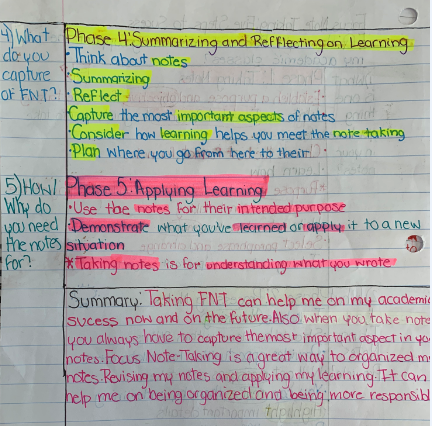 4) What do you capture of FNT?
Phase 4: Summarizing and Reflecting on Learning
·Think about notes
·Summarizing
·Reflect
·Capture the most important aspects of notes
·Consider how learning helps you meet the note taking
·Plan where you go from here to their
5) How/Why do you need the notes for?
Phase 5: Applying Learning
·Use the notes for their intended purpose
·Demonstrate what you've learned or apply it to a new
situation
*Taking notes is for understanding what you wrote
Summary: Taking FNT can help me on my academic
sucess now and on the future. Also when you take note
you always have to capture the most important aspect in yo
notes. Focus Note-Taking is a great way to organized m
notes. Revising my notes and applying my learning. It can
help me on being organized and being more responsibl